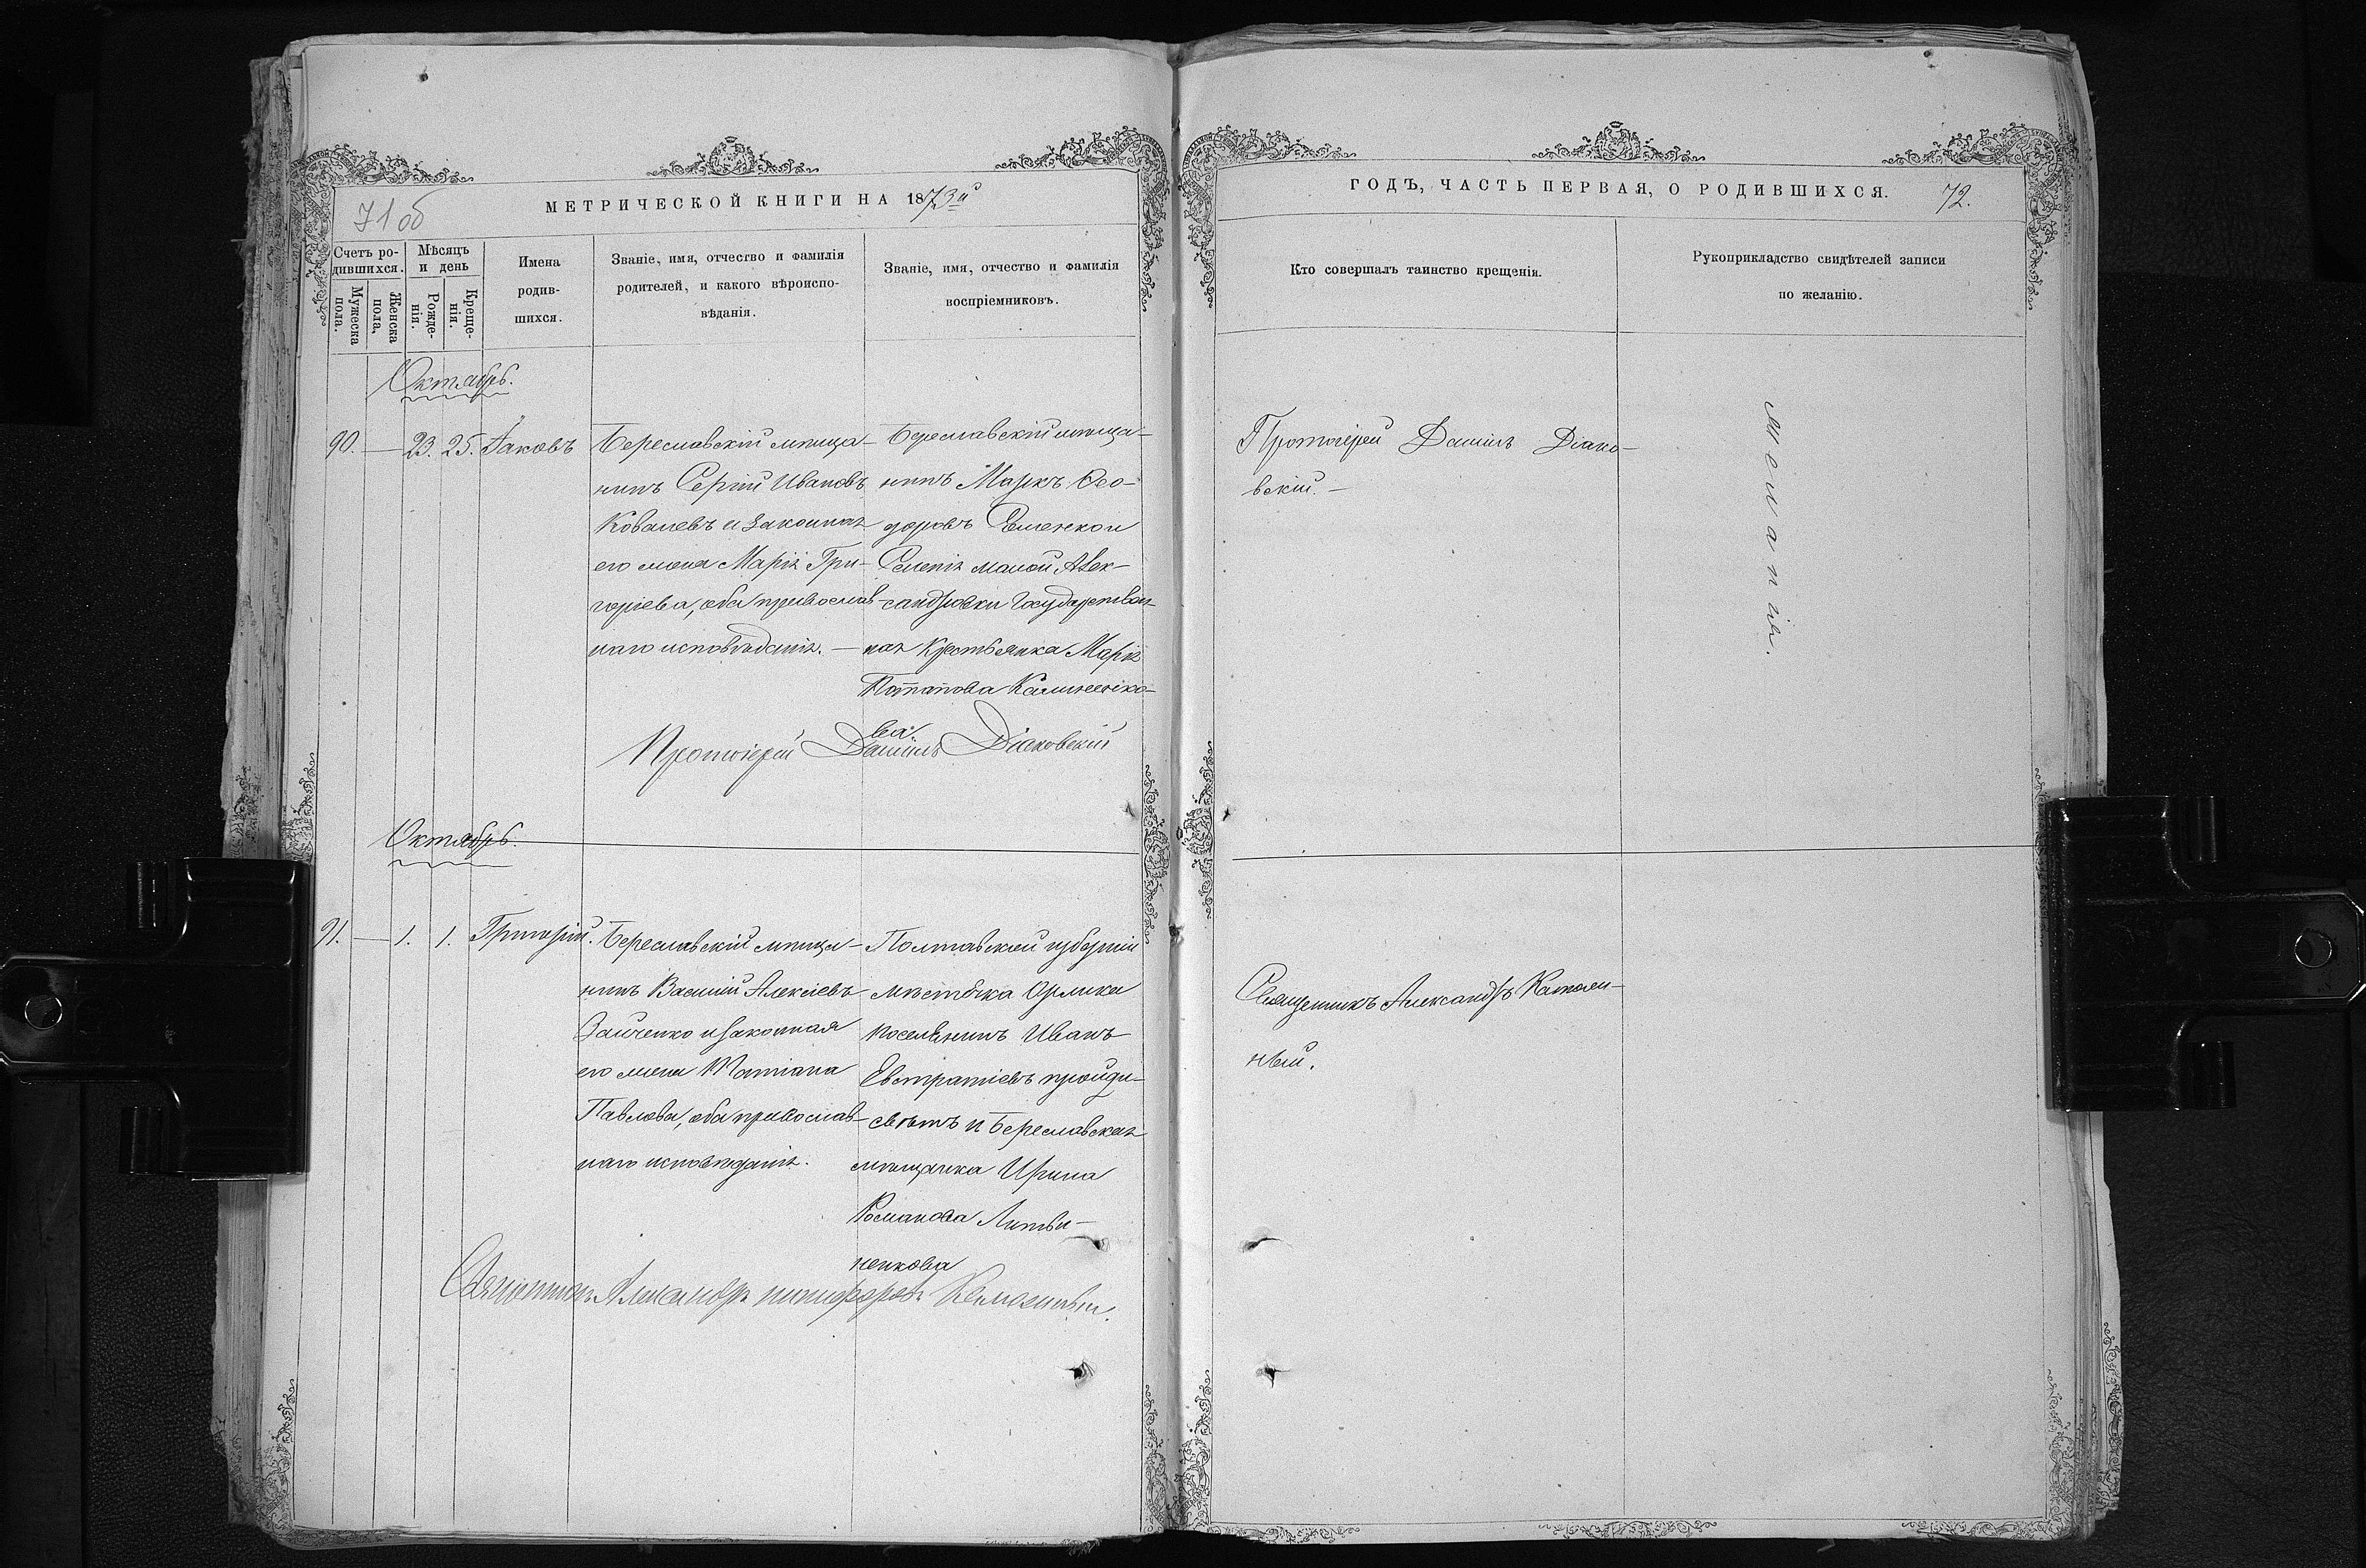 71 об
МЕТРИЧЕСКОЙ КНИГИ НА 1873й
Счетъ ро-
дившихся.
Мужеска
пола.
Женска
пола.
Мѣсяцъ
и день
Рожде-
нія.
Креще-
нія.
Имена
родив-
шихся.
Званіе, имя, отчество и фамилія
родителей, и какого вѣроиспо-
вѣданія.
Званіе, имя, отчество и фамилія
воспріемниковъ.
Октябрь.
90. — 23. 25. Іаковъ
Береславскій мѣща-
нинъ Сергій Ивановъ
Ковалевъ и законная
его жена Марія Гри-
горіева, оба православ-
наго исповѣданія. —
Береславскій мѣща-
нинъ Маркъ Ѳео-
доровъ и
Селенія малой Алек-
сандровки Государствен-
ная крестьянка Марія
Потапова Калиненко-
ва.
Протоіерей Даніилъ Діаковскій
Октябрь.
91. — 1. 1. Григорій.
Береславскій мѣща-
нинъ Василій Алексіевъ
Зайченко и законная
его жена Татіана
Павлова, оба православ-
наго исповѣданія.
Полтавской губерніи
мѣстечка Орлика
поселянинъ Иванъ
Евстратіевъ пройди-
свѣтъ и Береславская
мѣщанка Ирина
Романова Литви-
ненкова
Священникъ Александръ
ГОДЪ, ЧАСТЬ ПЕРВАЯ, О РОДИВШИХСЯ.
72.
Кто совершалъ таинство крещенія.
Рукоприкладство свидѣтелей записи
по желанію.
Протоіерей Даніилъ Діако-
вскій. —
Священникъ Александръ